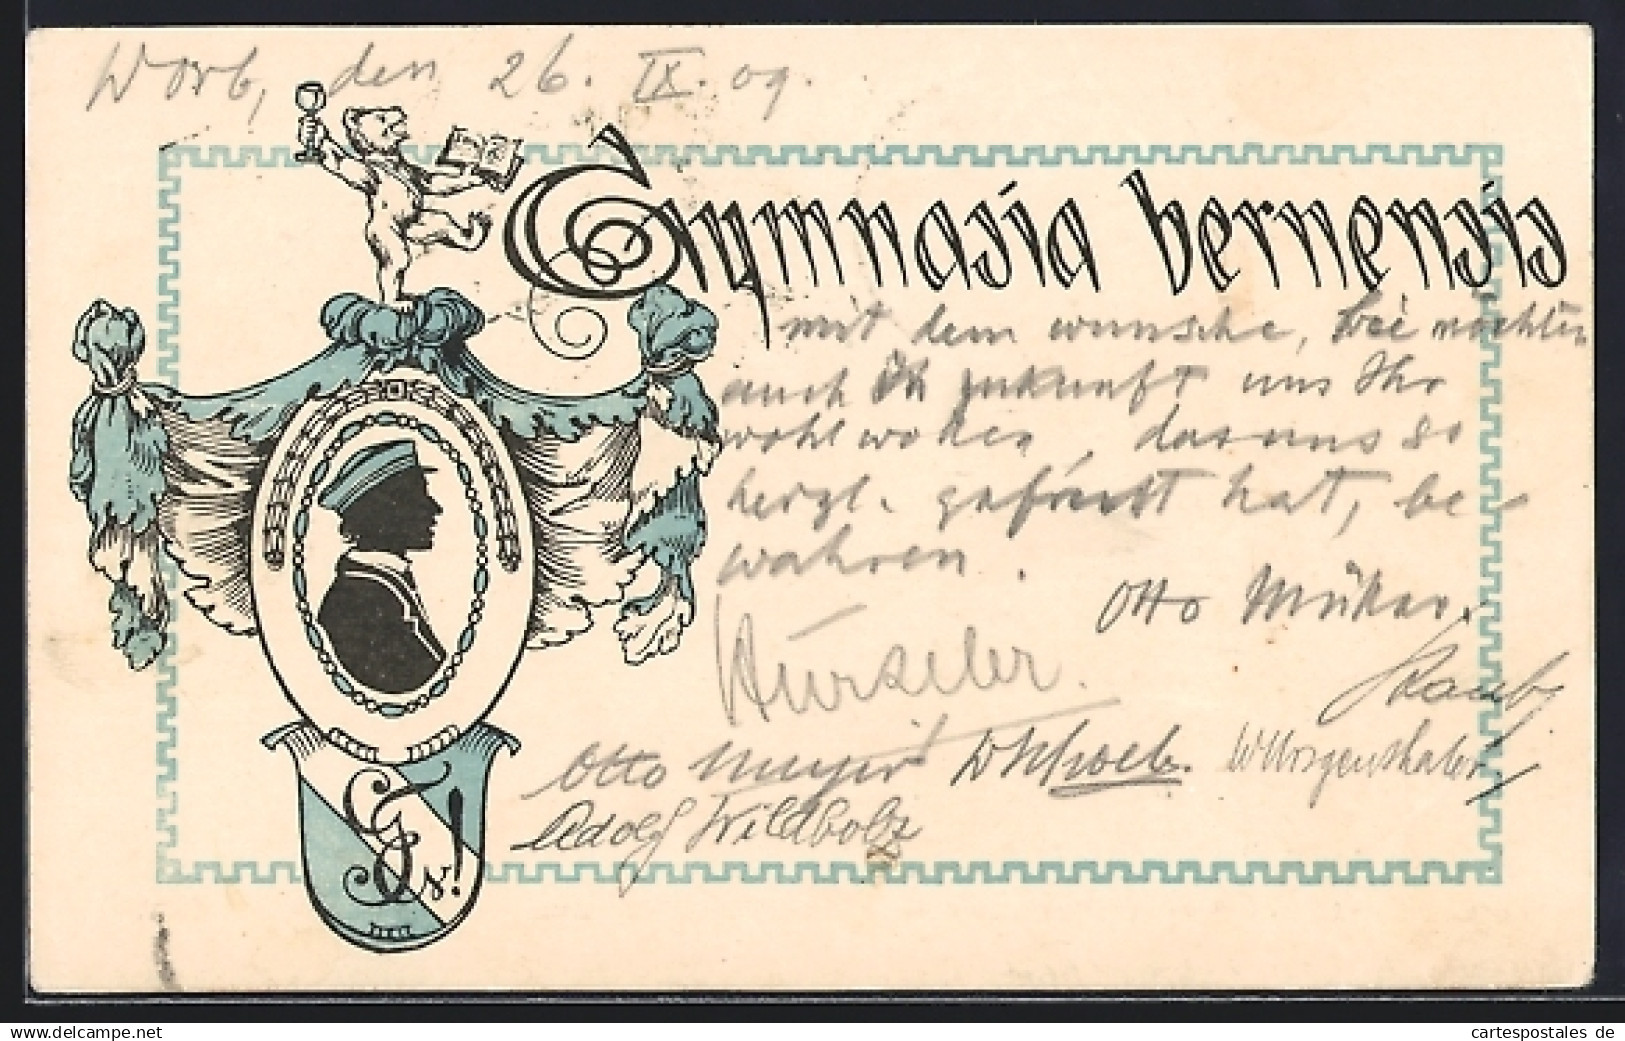 Worb, den 26. IX. 09.
Gymnasia bernensis
mit dem wunsche, Sie möchten
auch in zukunft uns Ihr
wohlwollen, das uns so
herzl. gefreut hat, be-
wahren.
Otto Müller.
Hürzeler.
Staub
Otto Meyer
WMorgenthaler
Adolf Wildbolz
G F v!
akpool.de
cartespostales de